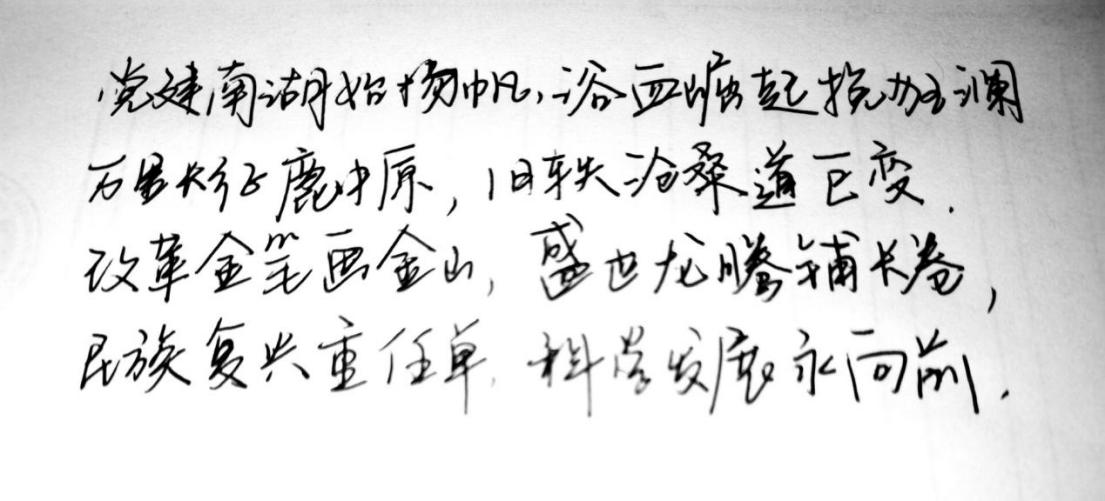 党建南湖始扬帆,浴血崛起挽狂澜
万里长征鹿中原,旧轶沧桑道巨变.
改革金笔画金山,盛世龙腾铺长卷,
民族复兴重任单,科学发展永向前.